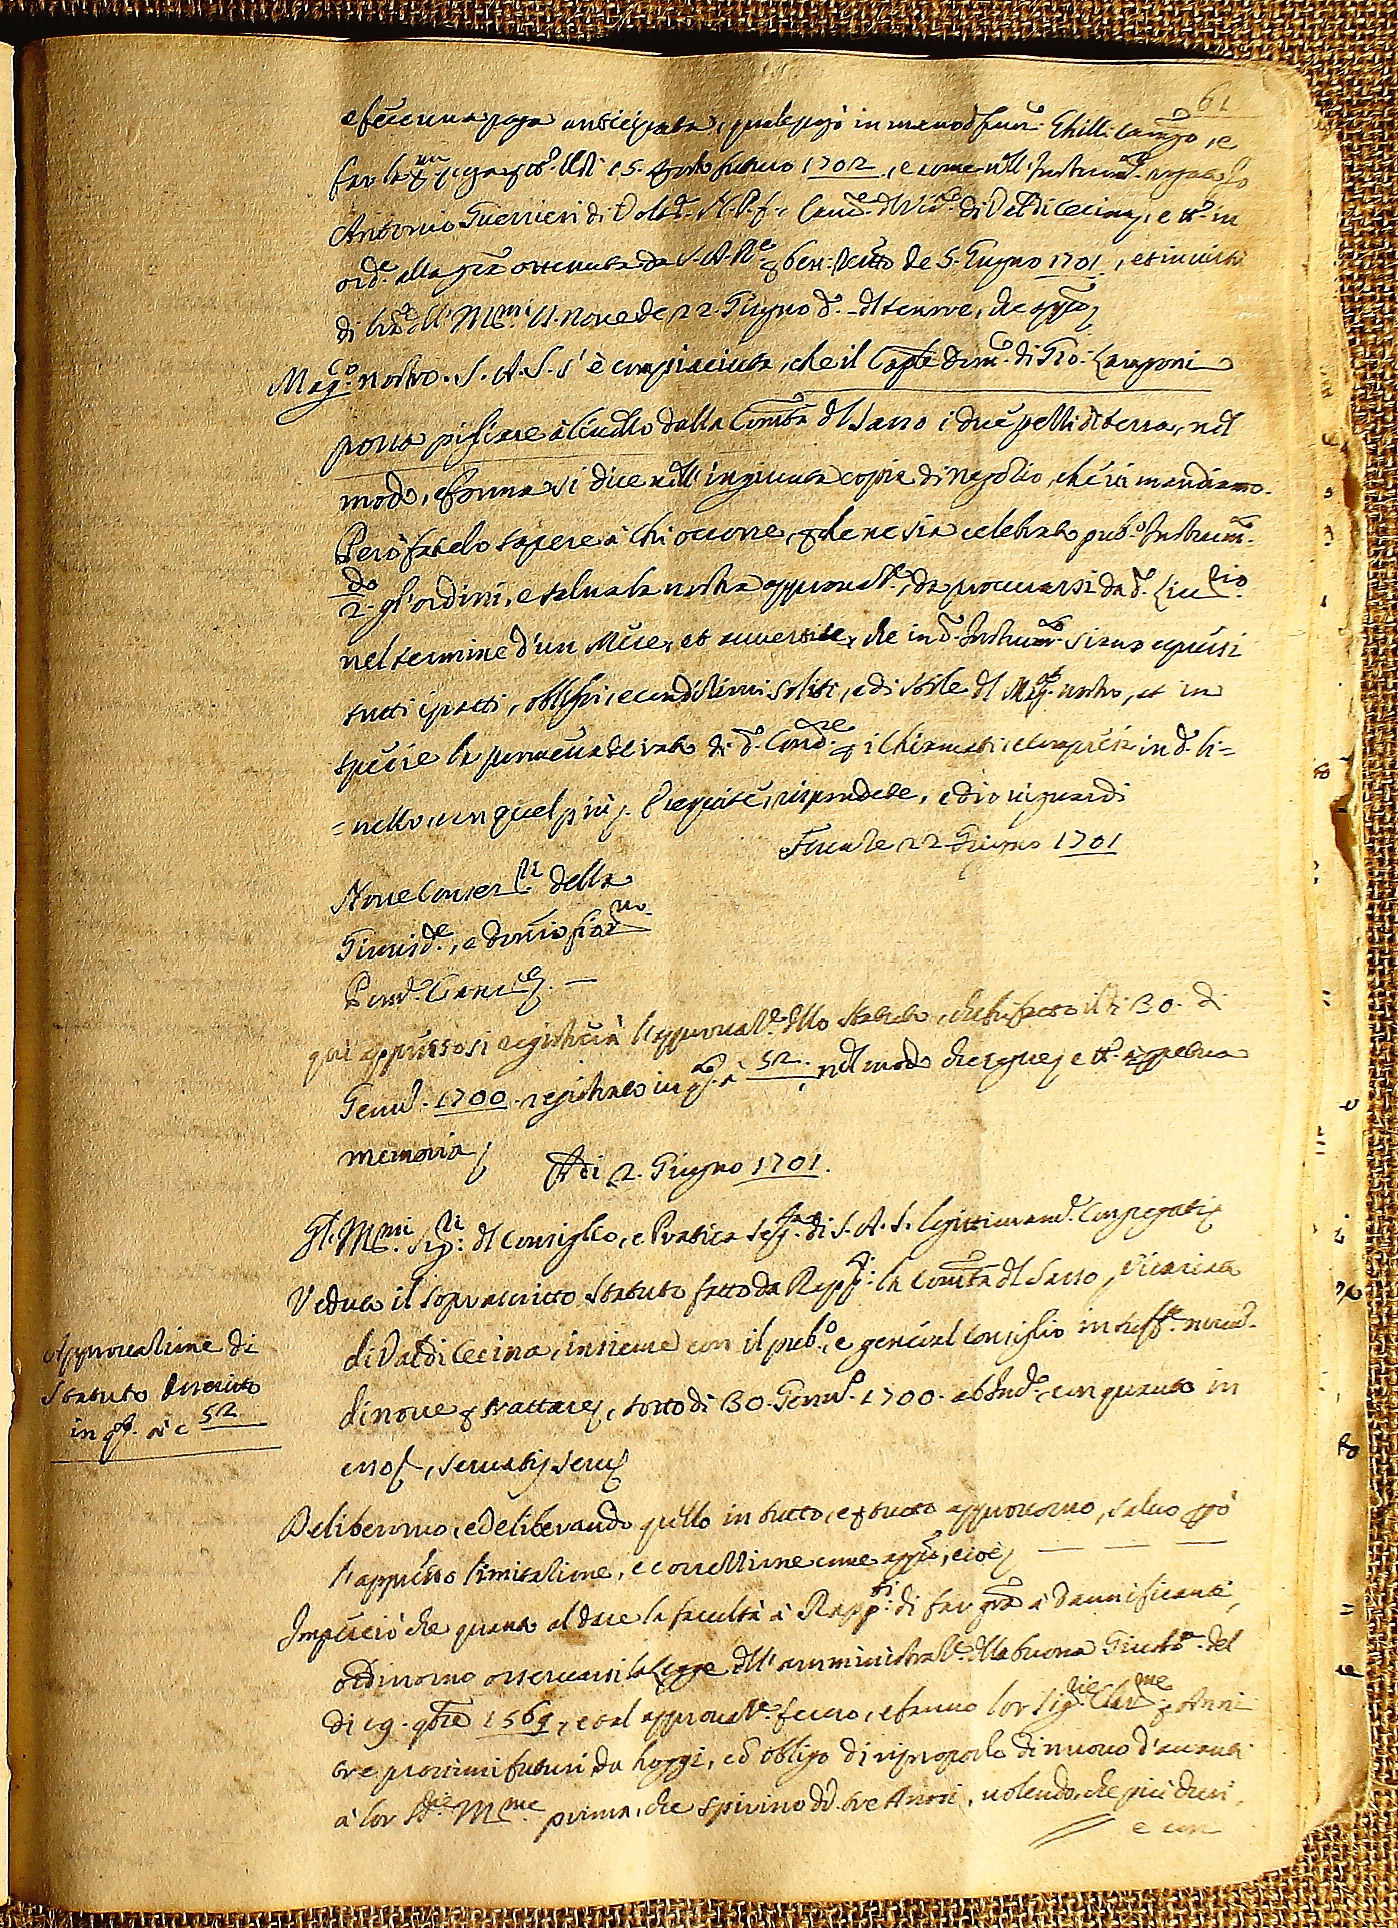 61
e fece una paga anticipata, quale pagò in mano d fran: Ghilli Camgo, e
far la pa paga p tto il dì 15. Agosto futuro 1702, e come nell' Instrumto rogato Jo
Antonio Guerrieri di Volad. N. P. f. Canc. d Vic. di Val di Cecina, e tto in
orde alla gra ottenuta da S. A. Re p ben. rescritto de 5. Giugno 1701, et in virtù
di lra dll' Mmi SS. Nove de 22 Giugno d. dl tenore, che appo
Mago: nostro. S. A. S. s' è compiaciuta, che il Caple Domo: di Gio: Camponi
possa pigliare à livello dalla Comtà dl Sasso i due pezzi di terra, nel
modo, e forma si dice nell' ingiunta copia di negozio, che vi mandiamo.
Però fatelo sapere à chi occorre, p che ne sia celebrato pubo: Instrum:
2do gl'ordini, e salva la nostra approvaze, da procurarsi da d. Livrio
nel termine d'un Mese, et avvertite, che in d. Instrumto siano espressi
tutti i patti, oblighi, e condizioni solite, e di stile dl Mago nostro, et in
specie la
di d. Condre p i chiamati, e compresi in d. li=
=vello, con quel più. Eseguite, rispondete, e Dio vi guardi
Firenze 22 Giugno 1701
Nove Conserri della
Giurisde, e dominio fiorno
Pend. Canc.
qui appresso si registrerà l'approvaze dllo Statuto, che fu fatto il dì 30. di
Genno. 1700 registrato in qsto à 52. nel modo che segue, e tto à ppetua
memoria
Adì 2. Giugno 1701.
Gl. Mmi Sigri: dl Consiglio, e Pratica Segta di S. A. S. legittimamte Congregati
Veduto il soprascritto Statuto fatto da Rappti: la Comtà dl Sasso, Vicariato
di Val di Cecina, insieme con il pubo, e general Consiglio in suffte num.
di nove p trattare, sotto dì 30. Genno 1700. ab Inde, con quanto in
esso, servatis servs
Approvazione di
Statuto descritto
in qsto à c 52
Deliberorno, e Deliberando quello in tutto, e p tutto approvorno, salvo pò
l'appresso limitazione, e correzzione come appo, cioè
Imperciò che quanto al dare la facultà à Rappti: di far gra à dannificanti,
ordinorno osservarsi la Legge dll' amministraze dlla buona Giustia del
dì 19. 9bre 1569, e tal approvaze fecero, e fanno lor Sigrie Clarme p Anni
tre prossimi futuri da hoggi, co obligo di riproporlo di nuovo d'avanti
à lor Sdie Mme prima, che spirino dd. tre Anni, volendo, che più duri,
e con